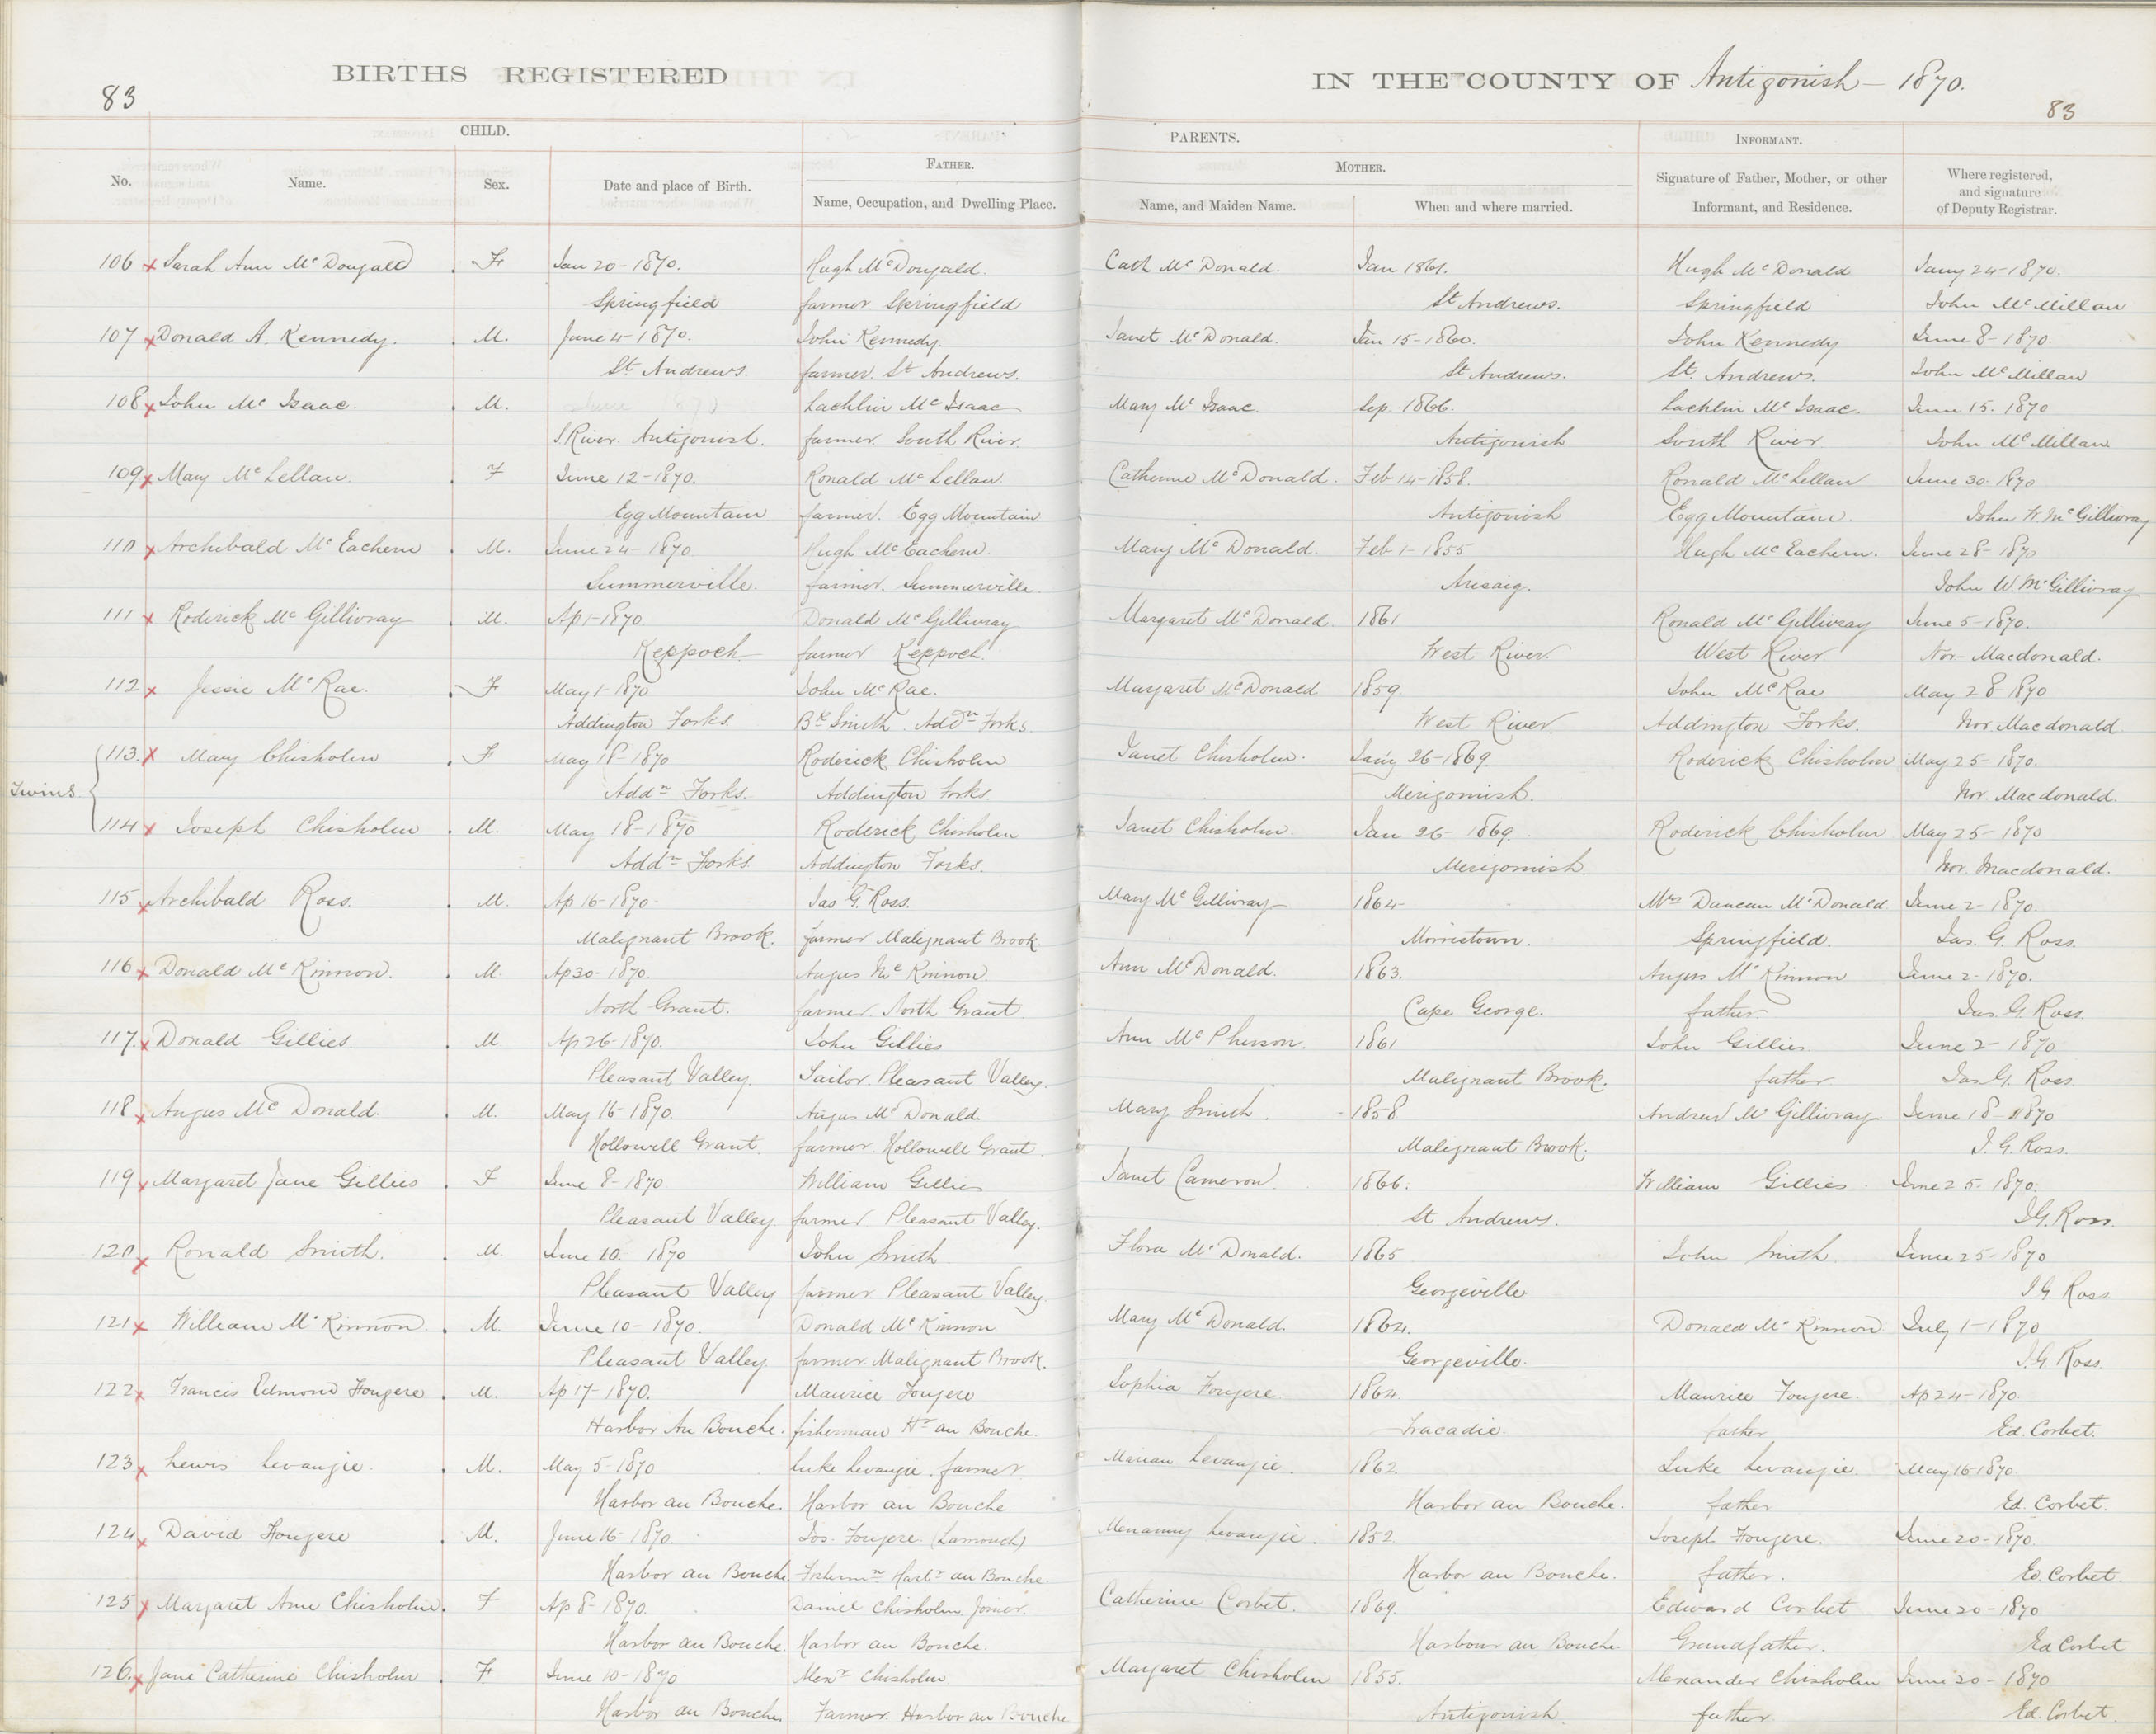 83
BIRTHS REGISTERED
IN THE COUNTY OF Antigonish – 1870.
83
CHILD.
PARENTS.
INFORMANT.
No.
Name.
Sex.
Date and place of Birth.
FATHER.
Name, Occupation, and Dwelling Place.
MOTHER.
Name, and Maiden Name.
When and where married.
Signature of Father, Mother, or other
Informant, and Residence.
Where registered,
and signature
of Deputy Registrar.
106 x Sarah Ann McDougald . F Jan 20-1870. Hugh McDougald. Cath McDonald. Jan 1861. Hugh McDonald Jany 24-1870.
Springfield farmer Springfield St Andrews. Springfield John McMillan
107 x Donald A. Kennedy. . M. June 4-1870. John Kennedy. Janet McDonald. Jan 15-1860. John Kennedy June 8-1870.
St. Andrews. farmer. St Andrews. St Andrews. St. Andrews. John McMillan
108 x John McIsaac. . M. June 1870 Lachlin McIsaac Mary McIsaac. Sep. 1866. Lachlin McIsaac. June 15. 1870
S. River. Antigonish. farmer. South River. Antigonish South River John McMillan
109 x Mary McLellan. . F June 12-1870. Ronald McLellan. Catherine McDonald. Feb 14-1858. Ronald McLellan June 30. 1870
Egg Mountain farmer. Egg Mountain Antigonish Egg Mountain. John W McGillivray
110 x Archibald McEachern . M. June 24-1870 Hugh McEachern. Mary McDonald. Feb 1-1855 Hugh McEachern. June 28-1870
Summerville. farmer. Summerville. Arisaig. John W McGillivray
111 x Roderick McGillivray . M. Ap 1-1870. Donald McGillivray Margaret McDonald. 1861 Ronald McGillivray June 5-1870.
Keppoch farmer Keppoch. West River. West River Nor Macdonald.
112 x Jessie McRae. . F May 1-1870 John McRae. Margaret McDonald 1859. John McRae May 28-1870
Addington Forks. Bk Smith. Addn Forks. West River. Addington Forks. Nor. Macdonald.
113. x Mary Chisholm . F May 18-1870 Roderick Chisholm Janet Chisholm. Jany 26-1869. Roderick Chisholm May 25-1870.
Twins. Addn Forks. Addington Forks. Merigomish. Nor. Macdonald.
114 x Joseph Chisholm . M. May 18-1870 Roderick Chisholm Janet Chisholm. Jan 26-1869. Roderick Chisholm May 25-1870
Addn Forks. Addington Forks. Merigomish. Nor. Macdonald.
115 x Archibald Ross. . M. Ap 16-1870- Jas G. Ross. Mary McGillivray 1864- Mrs Duncan McDonald June 2-1870.
Malignant Brook. farmer Malignant Brook. Morristown. Springfield. Jas. G. Ross.
116 x Donald McKinnon. . M. Ap 30-1870. Angus McKinnon. Ann McDonald. 1863. Angus McKinnon June 2-1870.
North Grant. farmer. North Grant. Cape George. father. Jas. G. Ross.
117. x Donald Gillies. . M. Ap 26-1870. John Gillies Ann McPherson. 1861 John Gillies June 2-1870
Pleasant Valley. Tailor. Pleasant Valley. Malignant Brook. father Jas. G. Ross.
118 x Angus McDonald. . M. May 16-1870. Angus McDonald Mary Smith. 1858 Andrew McGillivray June 18-1870
Hollowell Grant. farmer. Hollowell Grant. Malignant Brook. J. G. Ross.
119 x Margaret Jane Gillies . F June 8-1870 William Gillies Janet Cameron. 1866. William Gillies. June 25. 1870.
Pleasant Valley farmer. Pleasant Valley. St Andrews. J.G. Ross.
120 x Ronald Smith. . M. June 10. 1870 John Smith Flora McDonald. 1865 John Smith. June 25-1870
Pleasant Valley farmer. Pleasant Valley. Georgeville J.G. Ross
121 x William McKinnon. . M. June 10-1870. Donald McKinnon. Mary McDonald. 1864. Donald McKinnon July 1-1870
Pleasant Valley. farmer. Malignant Brook. Georgeville. J.G. Ross
122 x Francis Edmond Fougere . M. Ap 17-1870. Maurice Fougere Sophia Fougere. 1864. Maurice Fougere. Ap 24-1870.
Harbor Au Bouche. fisherman Hr au Bouche. Tracadie. father Ed. Corbet.
123 x Lewis Levangie. . M. May 5-1870 Luke Levangie. farmer Marian Levangie. 1862. Luke Levangie. May 16-1870.
Harbor au Bouche. Harbor au Bouche. Harbor au Bouche. father Ed. Corbet.
124 x David Fougere . M. June 16-1870. Jos. Fougere (Lamouch) Levangie. 1852. Joseph Fougere. June 20-1870.
Harbor au Bouche. Fishermn Harbr au Bouche. Harbor au Bouche. father. Ed. Corbet.
125 x Margaret Ann Chisholm. . F Ap 8-1870. Daniel Chisholm. Joiner. Catherine Corbet. 1869. Edward Corbet June 20-1870
Harbor au Bouche. Harbor au Bouche. Harbour au Bouche. Grandfather. Ed Corbet
126. x Jane Catherine Chisholm . F June 10-1870 Alexr Chisholm Margaret Chisholm 1855. Alexander Chisholm June 20-1870
Harbor au Bouche. Farmer. Harbor au Bouche Antigonish. father. Ed. Corbet.